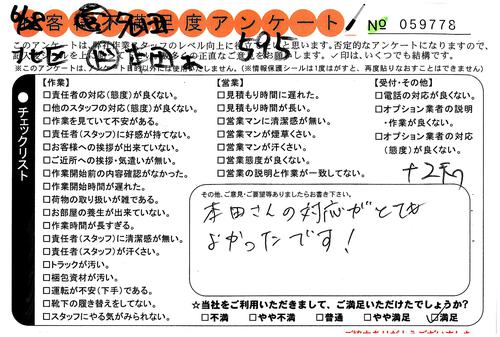 お客様不満足度アンケート
№ 059778
このアンケートは、弊社作業スタッフのレベル向上に役立てたいと思います。否定的なアンケートになりますので、
多の正直なご意見をお願いします。✓印は、いくつでも結構です。
※このアンケートは、アンケート目的以外には使用いたしません。(※情報保護シールは1度はがすと、再度貼りなおすことはできません。)
595
チェックリスト
【作業】
□責任者の対応(態度)が良くない。
□他のスタッフの対応(態度)が良くない。
□作業を見ていて不安がある。
□責任者(スタッフ)に好感が持てない。
□お客様への挨拶が出来ていない。
□ご近所への挨拶・気遣いが無い。
□作業開始前の内容確認がなかった。
□作業開始時間が遅れた。
□荷物の取り扱いが雑である。
□お部屋の養生が出来ていない。
□作業時間が長すぎる。
□責任者(スタッフ)に清潔感が無い。
□責任者(スタッフ)が汗くさい。
□トラックが汚い。
□梱包資材が汚い。
□運転が不安(下手)である。
□靴下の履き替えをしてない。
□スタッフにやる気がみられない。
【営業】
□見積もり時間に遅れた。
□見積もり時間が長い。
□営業マンに清潔感が無い。
□営業マンが煙草くさい。
□営業マンが汗くさい。
□営業態度が良くない。
□営業の説明と作業が一致してない。
【受付・その他】
□電話の対応が良くない。
□オプション業者の説明
・作業が良くない。
□オプション業者の対応
(態度)が良くない。
その他、ご意見・ご要望等ありましたらお書き下さい。
本田さんの対応がとても
よかったです!
☆当社をご利用いただきまして、ご満足いただけたでしょうか?
□不満 □やや不満 □普通 □やや満足 ☑満足
ご協力ありがとうございました